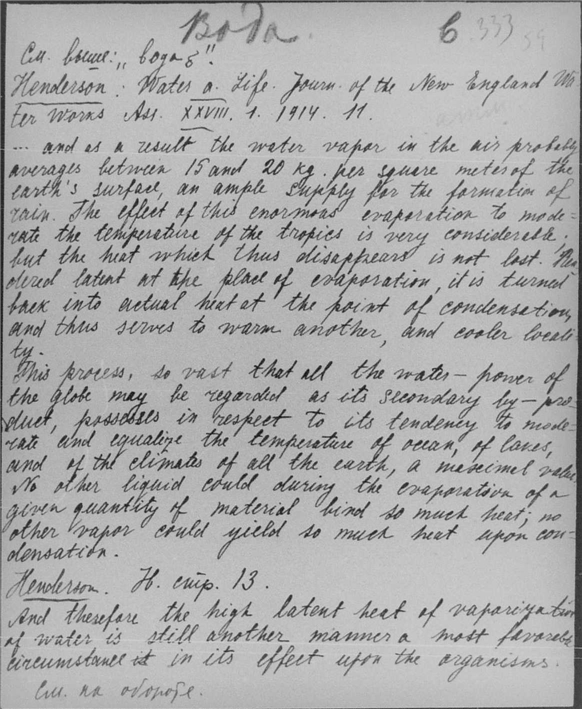 Вода.
6 .333
59
См. выше: „вода 5".
Henderson: Water a. Life. Journ. of the New England Wa-
ter Works Ass. XXVIII. 1. 1914. 11.
... and as a result the water vapor in the air probably
averages between 15 and 20 kg. per square meter of the
earth's surface, an ample supply for the formation of
rain. The effect of this enormous evaporation to mode-
rate the temperature of the tropics is very considerable.
but the heat which thus disappears is not lost. Ren-
dered latent at the place of evaporation, it is turned
back into actual heat at the point of condensation,
and thus serves to warm another, and cooler locali-
ty.
This process, so vast that all the water-power of
the globe may be regarded as its secondary by-pro-
duct, possesses in respect to its tendency to mode-
rate and equalize the temperature of ocean, of lakes,
and of the climates of all the earth, a maximal value.
No other liquid could during the evaporation of a
given quantity of material bind so much heat; no
other vapor could yield so much heat upon con-
densation.
Henderson. Н. стр. 13.
And therefore the high latent heat of vaporization
of water is still another manner a most favorable
circumstance in its effect upon the organisms.
См. на обороте.